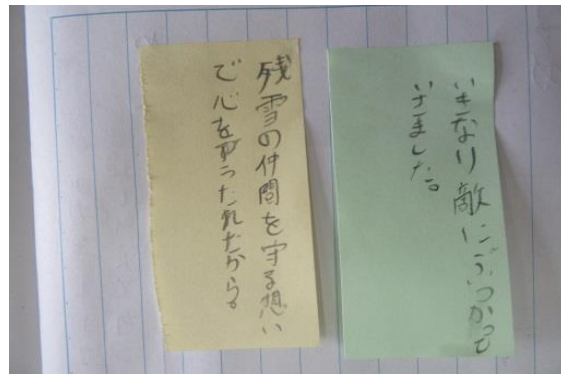 いきなり敵にぶつかって
いきました。
残雪の仲間を守る想い
で心をうたれたから。